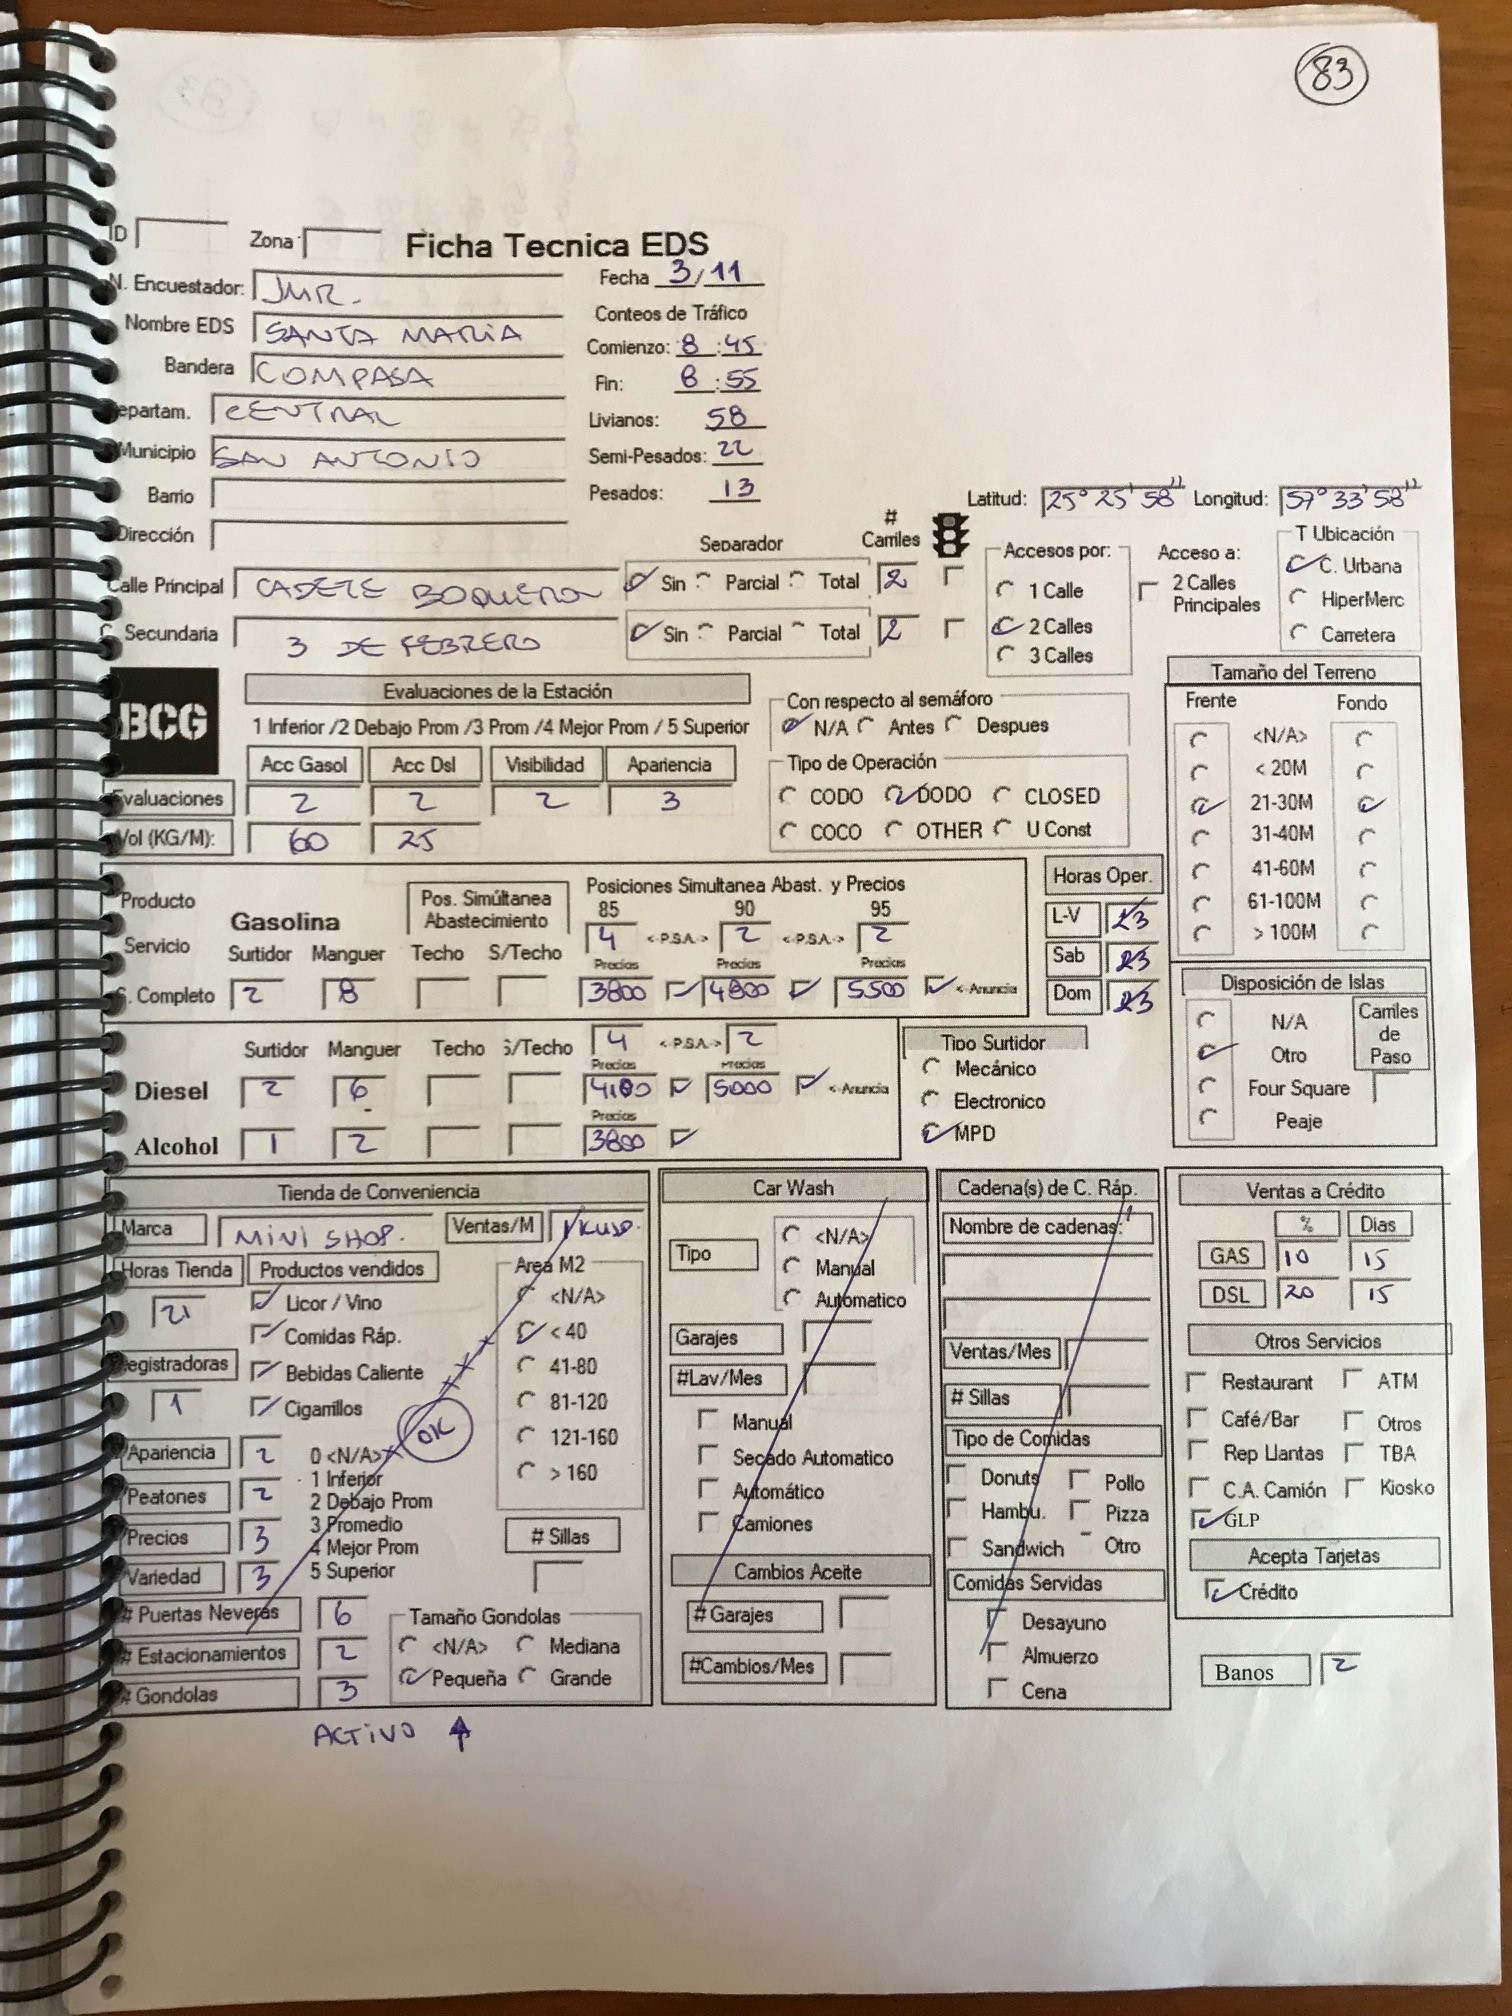 83
ID Zona Ficha Tecnica EDS
N. Encuestador: JMR. Fecha 3/11
Nombre EDS SANTA MARIA Conteos de Tráfico
Bandera COMPASA Comienzo: 8:45
Fin: 8:55
epartam. CENTRAL Livianos: 58
Municipio SAN ANTONIO Semi-Pesados: 22
Barrio Pesados: 13
Latitud: 25° 25' 58" Longitud: 57° 33' 58"
Dirección
Separador # Carriles Accesos por: Acceso a: T Ubicación
Calle Principal CADETE BOQUERON Sin Parcial Total 2 1 Calle 2 Calles Principales C. Urbana
HiperMerc
Secundaria 3 DE FEBRERO Sin Parcial Total 2 2 Calles Carretera
3 Calles
BCG Evaluaciones de la Estación Con respecto al semáforo Tamaño del Terreno
1 Inferior /2 Debajo Prom /3 Prom /4 Mejor Prom / 5 Superior N/A Antes Despues Frente Fondo
Acc Gasol Acc Dsl Visibilidad Apariencia Tipo de Operación <N/A>
< 20M
Evaluaciones 2 2 2 3 CODO DODO CLOSED 21-30M
Vol (KG/M): 60 25 COCO OTHER U Const 31-40M
41-60M
61-100M
> 100M
Producto Pos. Simúltanea Abastecimiento Posiciones Simultanea Abast. y Precios Horas Oper.
Gasolina 85 90 95 L-V 23
Servicio 4 <-P.S.A.-> 2 <-P.S.A.-> 2
Surtidor Manguer Techo S/Techo Precios Precios Precios Sab 23
S. Completo 2 8 3800 4800 5500 <-Anuncia Dom 23
Disposición de Islas
N/A Carriles de Paso
Otro
Four Square
Peaje
Surtidor Manguer Techo S/Techo 4 <-P.S.A.-> 2 Tipo Surtidor
Precios Precios Mecánico
Diesel 2 6 4100 5000 <-Anuncia Electronico
Precios
Alcohol 1 2 3800 MPD
Tienda de Conveniencia Car Wash Cadena(s) de C. Ráp. Ventas a Crédito
Marca MINI SHOP. Ventas/M Nombre de cadenas: % Dias
Horas Tienda Productos vendidos Area M2 Tipo <N/A> GAS 10 15
21 Licor / Vino <N/A> Manual DSL 20 15
Comidas Ráp. < 40 Automatico
Registradoras Bebidas Caliente 41-80 Garajes Ventas/Mes Otros Servicios
1 Cigarrillos 81-120 #Lav/Mes # Sillas Restaurant ATM
OK 121-160 Manual Tipo de Comidas Café/Bar Otros
Apariencia 2 0 <N/A> > 160 Secado Automatico Donuts Pollo Rep Llantas TBA
Peatones 2 1 Inferior Automático Hambu. Pizza C.A. Camión Kiosko
2 Debajo Prom Camiones Sandwich Otro GLP
Precios 3 3 Promedio # Sillas
4 Mejor Prom
Variedad 3 5 Superior Cambios Aceite Comidas Servidas Acepta Tarjetas
# Puertas Neveras 6 Tamaño Gondolas # Garajes Desayuno Crédito
# Estacionamientos 2 <N/A> Mediana #Cambios/Mes Almuerzo Banos 2
# Gondolas 3 Pequeña Grande Cena
ACTIVO